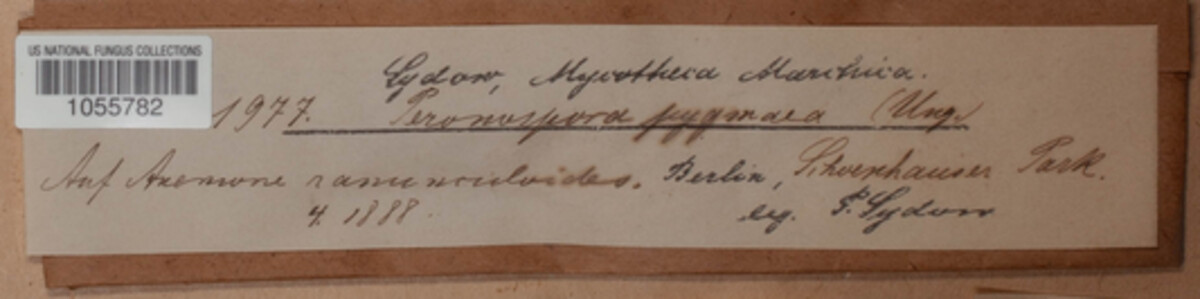 US NATIONAL FUNGUS COLLECTIONS
1055782
Sydow, Mycotheca Marchica.
1977. Peronospora pygmaea (Ung.)
Auf Anemone ranunculoides. Berlin, Schoenhauser Park.
4. 1888. leg. P. Sydow